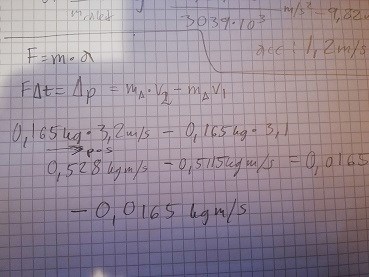 3039·10³
m/s² = 9,82
acc: 1,2 m/s
F = m·a
FΔt = Δp = m_A·v₂ - m_A v₁
0,165 kg · 3,2 m/s - 0,165 kg · 3,1
pos
0,528 kg m/s - 0,5115 kg m/s = 0,0165
- 0,0165 kg m/s